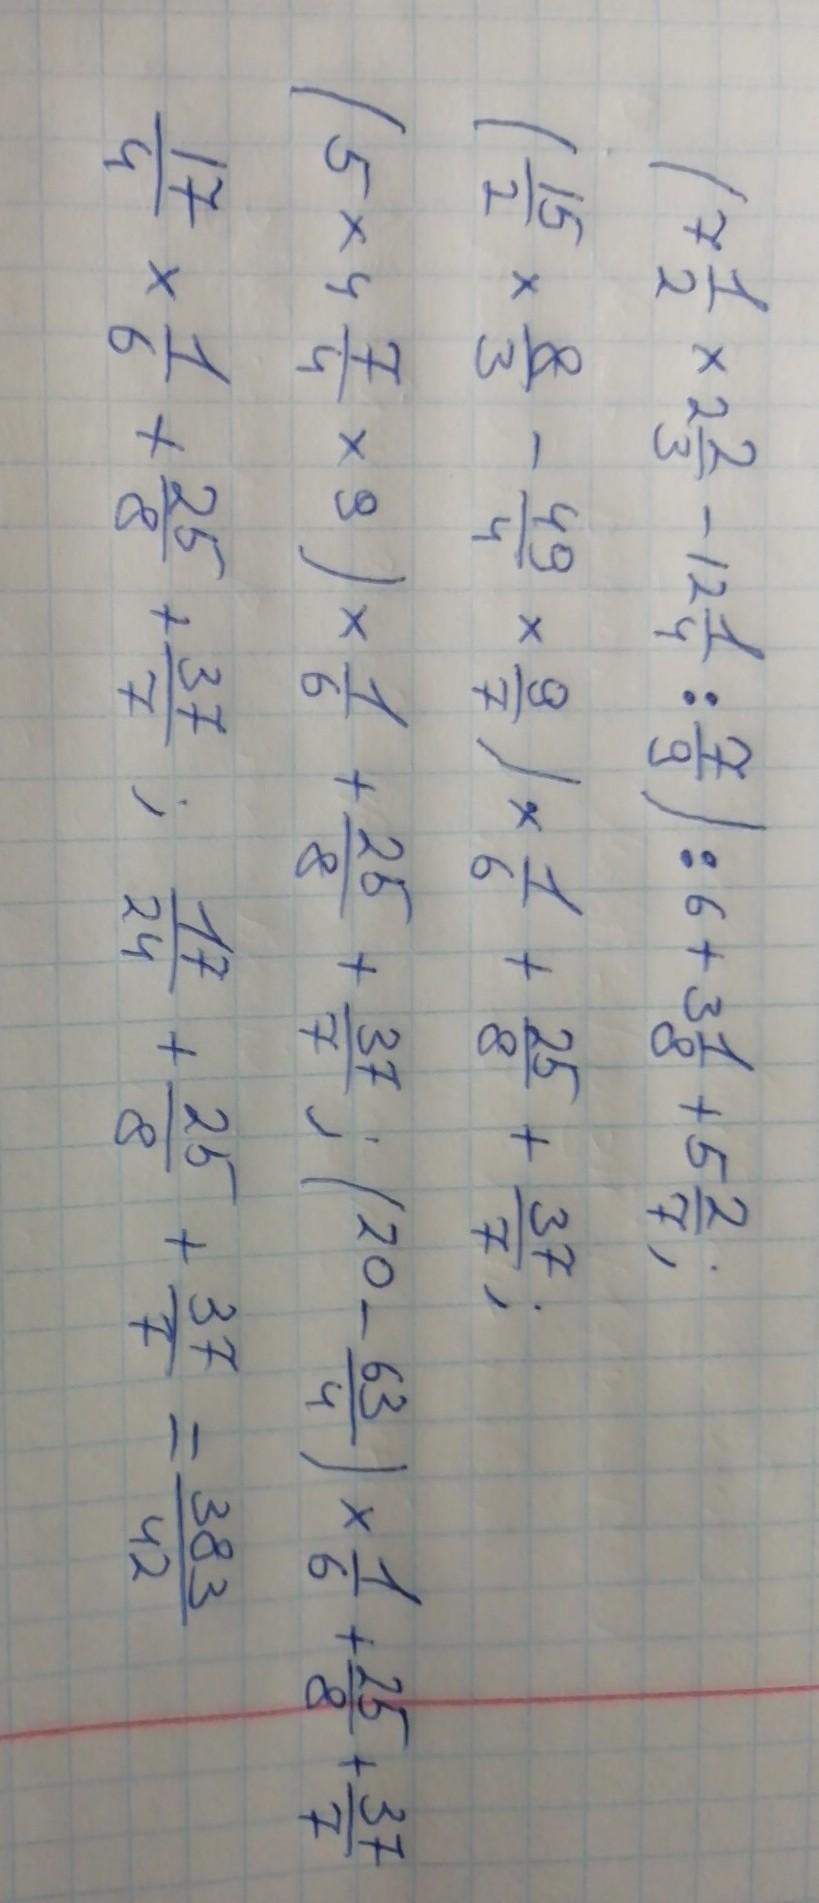 (7 1/2 × 2 2/3 - 12 1/4 : 7/9) : 6 + 3 1/8 + 5 2/7;
(15/2 × 8/3 - 49/4 × 9/7) × 1/6 + 25/8 + 37/7;
(5 × 4 7/4 × 9) × 1/6 + 25/8 + 37/7; (20 - 63/4) × 1/6 + 25/8 + 37/7
17/4 × 1/6 + 25/8 + 37/7; 17/24 + 25/8 + 37/7 = 383/42